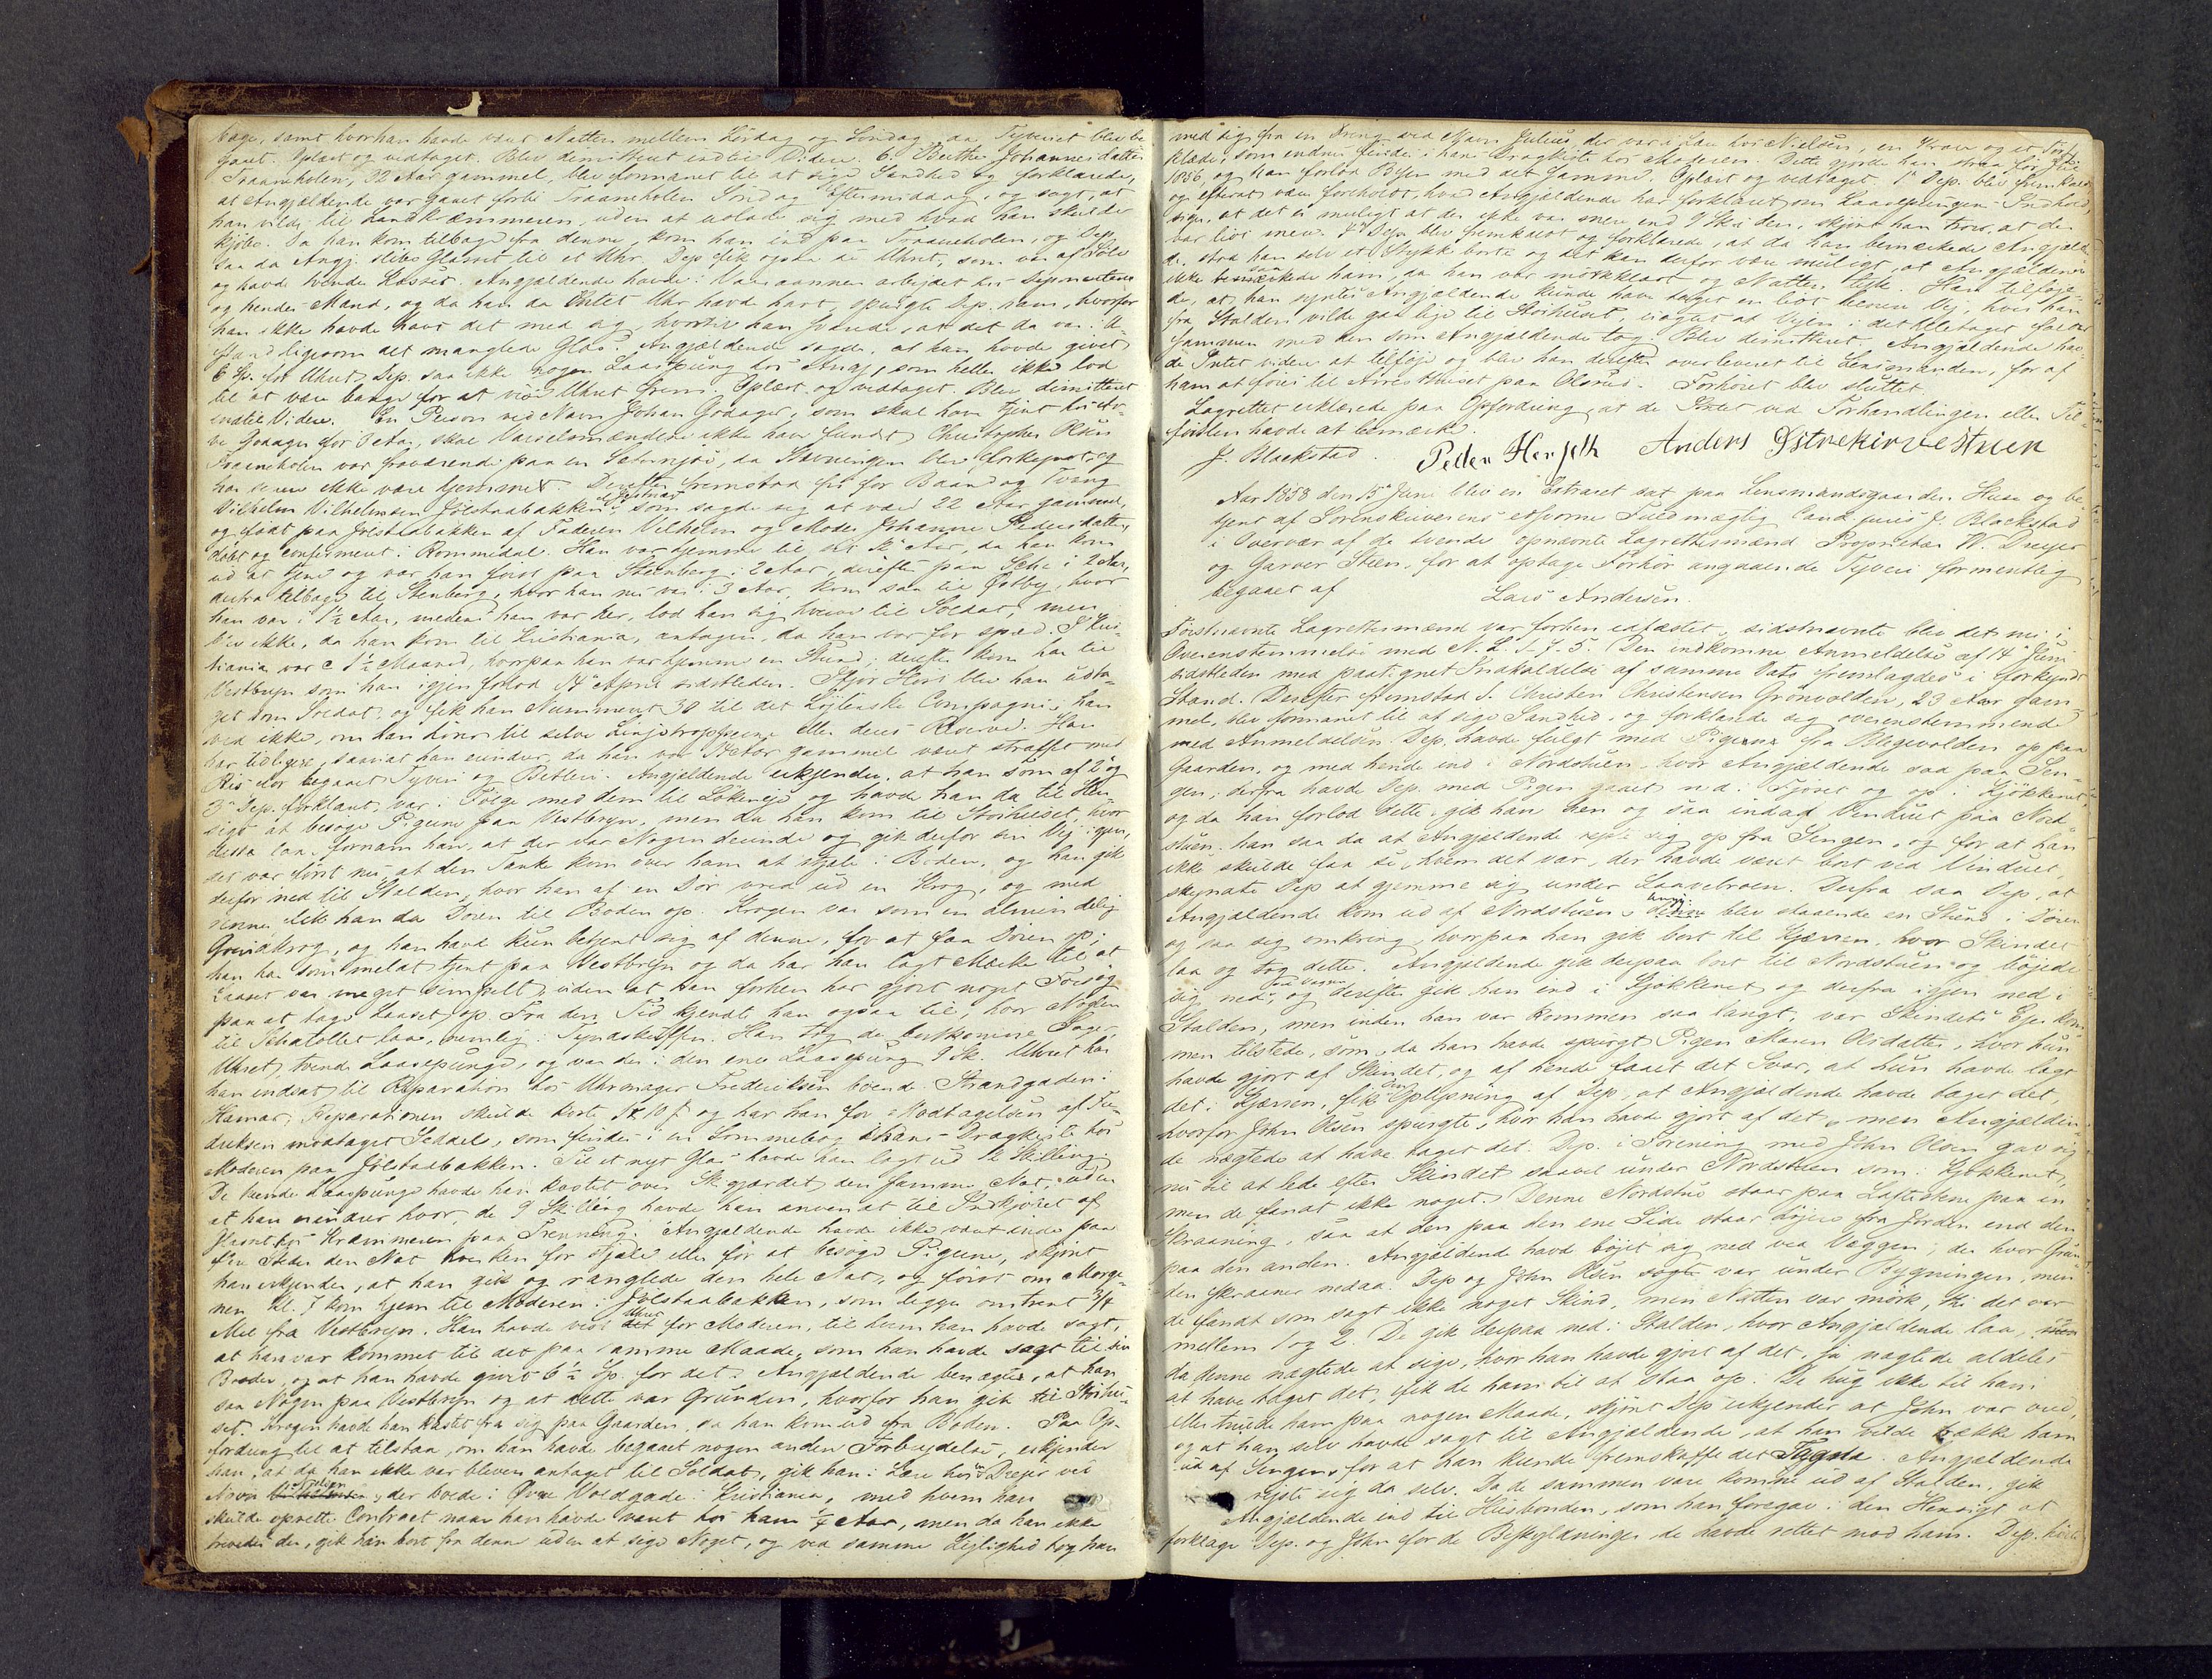 bage, samt hvor han havde været Natten mellem Lördag og Söndag, da Tyveriet blev be
gaaet. Oplæst og vedtaget. Blev demitteret indtil Videre. 6. Berthe Johannesdatter
Traaneholen, 32 Aar gammel, blev formanet til at sige Sandhed og forklarede,
at Angjældende var gaaet forbi Traaneholen Eftermiddag, og sagt, at
han vilde til Landkræmmeren, uden at udlade sig med hvad han skulde
kjöbe. Da han kom tilbage fra denne, kom han ind paa Traaneholen, og Dep.
saa da Angj. slibe Glasset til et Uhr. Dep. fik ogsaa se Uhret, som var af Sölv
og havde tvende Kasser. Angjældende havde i Vaaraannen arbeidet hos Deponentinen
og hendes Mand, og da han da intet Uhr havde havt, spurgte Dep. ham, hvorfor
han ikke havde havt det med sig, hvortil han svarede, at det da var i U-
stand ligesom det manglede Glas. Angjældende sagde, at han havde givet
6 Sp. for Uhret. Dep. saa ikke nogen Laasepung hos Angj., som heller ikke lod
til at være bange for at vise Uhret frem. Oplæst og vedtaget. Blev demitteret
indtil Videre. En Person ved Navn Johan Godager, som skal have tjent hos
Godager for 3 Aar, skal Varselsmændene ikke have fundet. Christopher Olsen
Traaneholen var fraværende paa en Sæterreise, da Stævningen blev forkyndt og
har ikke være hjemmet. Derefter fremstod fri for Baand og Tvang
Vilhelm Vilhelmsen Jölstadbakken, som sagde sig at være 22 Aar gammel,
og födt paa Jölstadbakken af Faderen Vilhelm og Moder Johanne Pedersdatter,
döbt og confirmeret i Rommedal. Han var hjemme til sit Aar, da han kom
ud at tjene og var han först paa Steenberg i 2 Aar, derefter paa i 2 Aar,
derfra tilbage til Stenberg, hvor han nu var i 3 Aar, kom saa til Östby, hvor
han var i 1½ Aar, medens han var her, lod han sig hverve til Soldat, men
blev ikke, da han kom til Christiania, antagen, da han var for spæd. I Kri-
stiania var c 1½ Maaned, hvorpaa han var hjemme en Stund; derefter kom han til
Vestbryn som han igjen forlod 14de April sidstleden. Ifjor Höst blev han udta-
get som Soldat, og fik han Nummeret 38 til det Löitenske Compagni; han
ved ikke, om han hörer til selve Linjetropperne eller deres Reserve. Han
har tidligere, saavidt han erindrer, da han var Aar gammel været straffet med
Ris for begaaet Tyveri og Betleri. Angjældende erkjender, at han som af 2de og
3de Dep. forklaret, var i Fölge med dem til Lökeneje og havde han da til Hen-
sigt at besöge Pigerne paa Vestbryn, men da han kom til Storhuset, hvor
disse laa, fornam han, at der var Nogen derinde og gik derfor sin Vej igjen,
det var först nu, at den Tanke kom over ham at stjele i Boden, og han gik
derfor ned til Stalden, hvor han af en Dör vred ud en Krog, og med
denne fik han da Dören til Boden op. Krogen var som en almindelig
Grindkrog, og han havde kun betjent sig af denne, for at faa Dören op;
han har som meldt tjent paa Vestbryn og da har han lagt Mærke til at
Laaset var meget simpelt, uden at han forhen har gjort noget Forsög
paa at tage Laaset op. Fra den Tid kjendte han ogsaa til, hvor Nöglen
til Schatollet laae, nemlig i Han tog de bortkomne Sager,
Uhret, tvende Laasepunge, og var der i den ene Laasepung 9 Sk. Uhret har
han indsat til Reparation hos Uhrmager Frederiksen boende i Strandgaden i
Hamar; Reparationen skulde koste og har han for Modtagelsen af Fre-
driksen modtaget Seddel, som findes i en Lommebog i hans Dragkiste hos
Moderen paa Jölstadbakken. Til et nyt Glas havde han lagt ud 12 Skilling.
De tvende Laasepunge havde han kastet over Skigardet den samme Nat, uden
at han erindrer hvor, de 9 Skilling havde han anvendt til Indkjöbet af
hos Kræmmeren paa Trenning. Angjældende havde ikke været inde paa
flere Steder den Nat hverken for stjele eller for at besöge Pigerne, skjönt
han erkjender, at han gik og ranglede den hele Nat, og först om Morge-
nen Kl. 7 kom hjem til Moderen i Jölstadbakken, som ligger omtrent 3/4
Mil fra Vestbryn. Han havde vist det Uhret for Moderen, til hvem han havde sagt,
at han var kommet til det paa samme Maade, som han havde sagt til sin
Broder, og at han havde givet 6½ Sp. for det. Angjældende benægter, at han
saa Nogen paa Vestbryn og at dette var Grunden, hvorfor han gik til Storhu-
set. Krogen havde han kastet fra sig paa Gaarden, da han kom ud fra Boden. Paa Op-
fordring til at tilstaa, om han havde begaaet nogen anden Forbrydelse, erkjender
han, at da han ikke var bleven antaget til Soldat, gik han i Lære hos en Drejer ved
Navn Nielsen, der boede i Övre Voldgade i Kristiania, med hvem han
skulde oprette Contract naar han havde været hos ham ¼ Aar, men da han ikke
trivedes der, gik han bort fra denne uden at sige Noget, og ved samme Leilighed tog han
med sig fra en Dreng ved Navn Julius, der var i Lære hos Nielsen, en Krave og et Tör-
klæde, som endnu findes i hans Dragkiste hos Moderen. Dette gjorde han strax för
1856, og han forlod Byen med det Samme. Oplæst og vedtaget. 1ste Dep. blev fremkaldt
og efterat være foreholdt, hvad Angjældende har forklaret om Laasepungens Indhold,
siger, at det er muligt at der ikke var mere end 9 Sk. i den, skjönt han troer, at der
var lidt mere. Dep. blev fremkaldt og forklarede, at da han bemærkede Angjælden
de, stod han selv et Stykke borte og det kan derfor være muligt, at Angjældende
ikke bemærkede ham, da han var mörkklædt og Natten tyk. Han tilföje-
de, at han syntes Angjældende kunde have taget en lidt kortere Vej, hvis han
fra Stalden vilde gaa lige til Storhuset, uagtet at Vejen i det hele taget falder
sammen med den som Angjældende tog. Blev demitteret. Angjældende hav-
de Intet videre at tilföje og blev han derefter overleveret til Lensmanden, for af
ham at föres til Arresthuset paa Olsrud. Forhöret blev sluttet.
Lagrettet erklærede paa Opfordring, at de Intet ved Forhandlingen eller Til-
förslen havde at bemærke.
J. Blackstad. Peder Herseth Anders Östrekirvestuen
Aar 1858 den 15de Juni blev en Extraret sat paa Lensmandsgaarden Huse og be-
tjent af Sorenskriverens edsvorne Fuldmægtig Cand. juris J. Blackstad
i Overvær af de tvende opnævnte Lagrettesmænd Proprietær W. Dreyer
og Garver Steen, for at optage Forhör angaaende Tyveri formentlig
begaaet af
Lars Andersen.
Förstnævnte Lagrettesmænd var forhen edfæstet, sidstnævnte blev det nu i
Overensstemmelse med N. L. 1-7-5. Den indkomne Anmeldelse af 14de Juni
sidstleden med paategnet Indkaldelse af samme Dato fremlagdes i forkyndt
Stand. Derefter fremstod 1. Christen Christensen Grönvolden, 23 Aar gam-
mel, blev formanet til at sige Sandhed, og forklarede sig overensstemmende
med Anmeldelsen. Dep. havde fulgt med Pigerne fra Blegevolden op paa
Gaarden, og med hende ind i Nordstuen, hvor Angjældende saa paa Sen-
gen; derfra havde Dep. med Pigen gaaet ned i Fjöset og op i Kjökkenet,
og da han forlod dette, gik han hen og saa indad Vinduet paa Nord-
stuen. han saa da at Angjældende rejste sig op fra Sengen, og for at han
ikke skulde faa se, hvem det var, der havde været bort ved Vinduet,
skyndte Dep at gjemme sig under Laavebroen. Derfra saa Dep, at
Angjældende kom ud af Nordstuen, Angj. blev staaende en Stund i Dören
og saa sig omkring, hvorpaa han gik bort til Kjærren, hvor Skindet
laa og tog dette. Angjældende gik derpaa bort til Nordstuen og böjede
sig ned, og derefter gik han ind i Kjökkenet og derfra igjen ned i
Stalden, men inden han var kommen saa langt, var Skindets Ejer kom-
men tilstede, som, da han havde spurgt Pigen Maren Olsdatter, hvor hun
havde gjort af Skindet, og af hende faaet det Svar, at hun havde lagt
det i Kjærren, fik den Oplysning af Dep, at Angjældende havde taget det,
hvorfor John Olsen spurgte, hvor han havde gjort af det, men Angjælden-
de nægtede at have taget det. Dep. i Forening med John Olsen gav sig
nu til at lede efter Skindet saavel under Nordstuen som i Kjökkenet,
men de fandt ikke noget. Denne Nordstue staar paa paa en
Skraaning, saa at den paa den ene Side staar höjere fra Jorden end den
paa den anden. Angjældende havde böjet sig ned ved Væggen, der hvor Grun-
den skraaner nedaa. Dep og John Olsen sögte var under Bygningen, men
de fandt som sagt ikke noget Skind, men Natten var mörk, thi det var
mellem 1 og 2. De gik derpaa ned i Stalden, hvor Angjældende laa,
da denne nægtede at sige, hvor han havde gjort af det, ja nægtede aldeles
at have taget det, fik de ham til at staa op. De hug ikke til ham
eller truede ham paa nogen Maade, skjönt Dep erkjender at John var vred,
og at han selv havde sagt til Angjældende, at han vilde trække ham
ud af Sengen, for at han kunde fremskaffe det Tagne. Angjældende
rejste sig da selv. Da de sammen vare komne ud af Stalden, gik
Angjældende ind til Husbonden, som han foregav i den Hensigt at
forklage Dep. og John for de Beskyldninger de havde rettet mod ham. Dep.